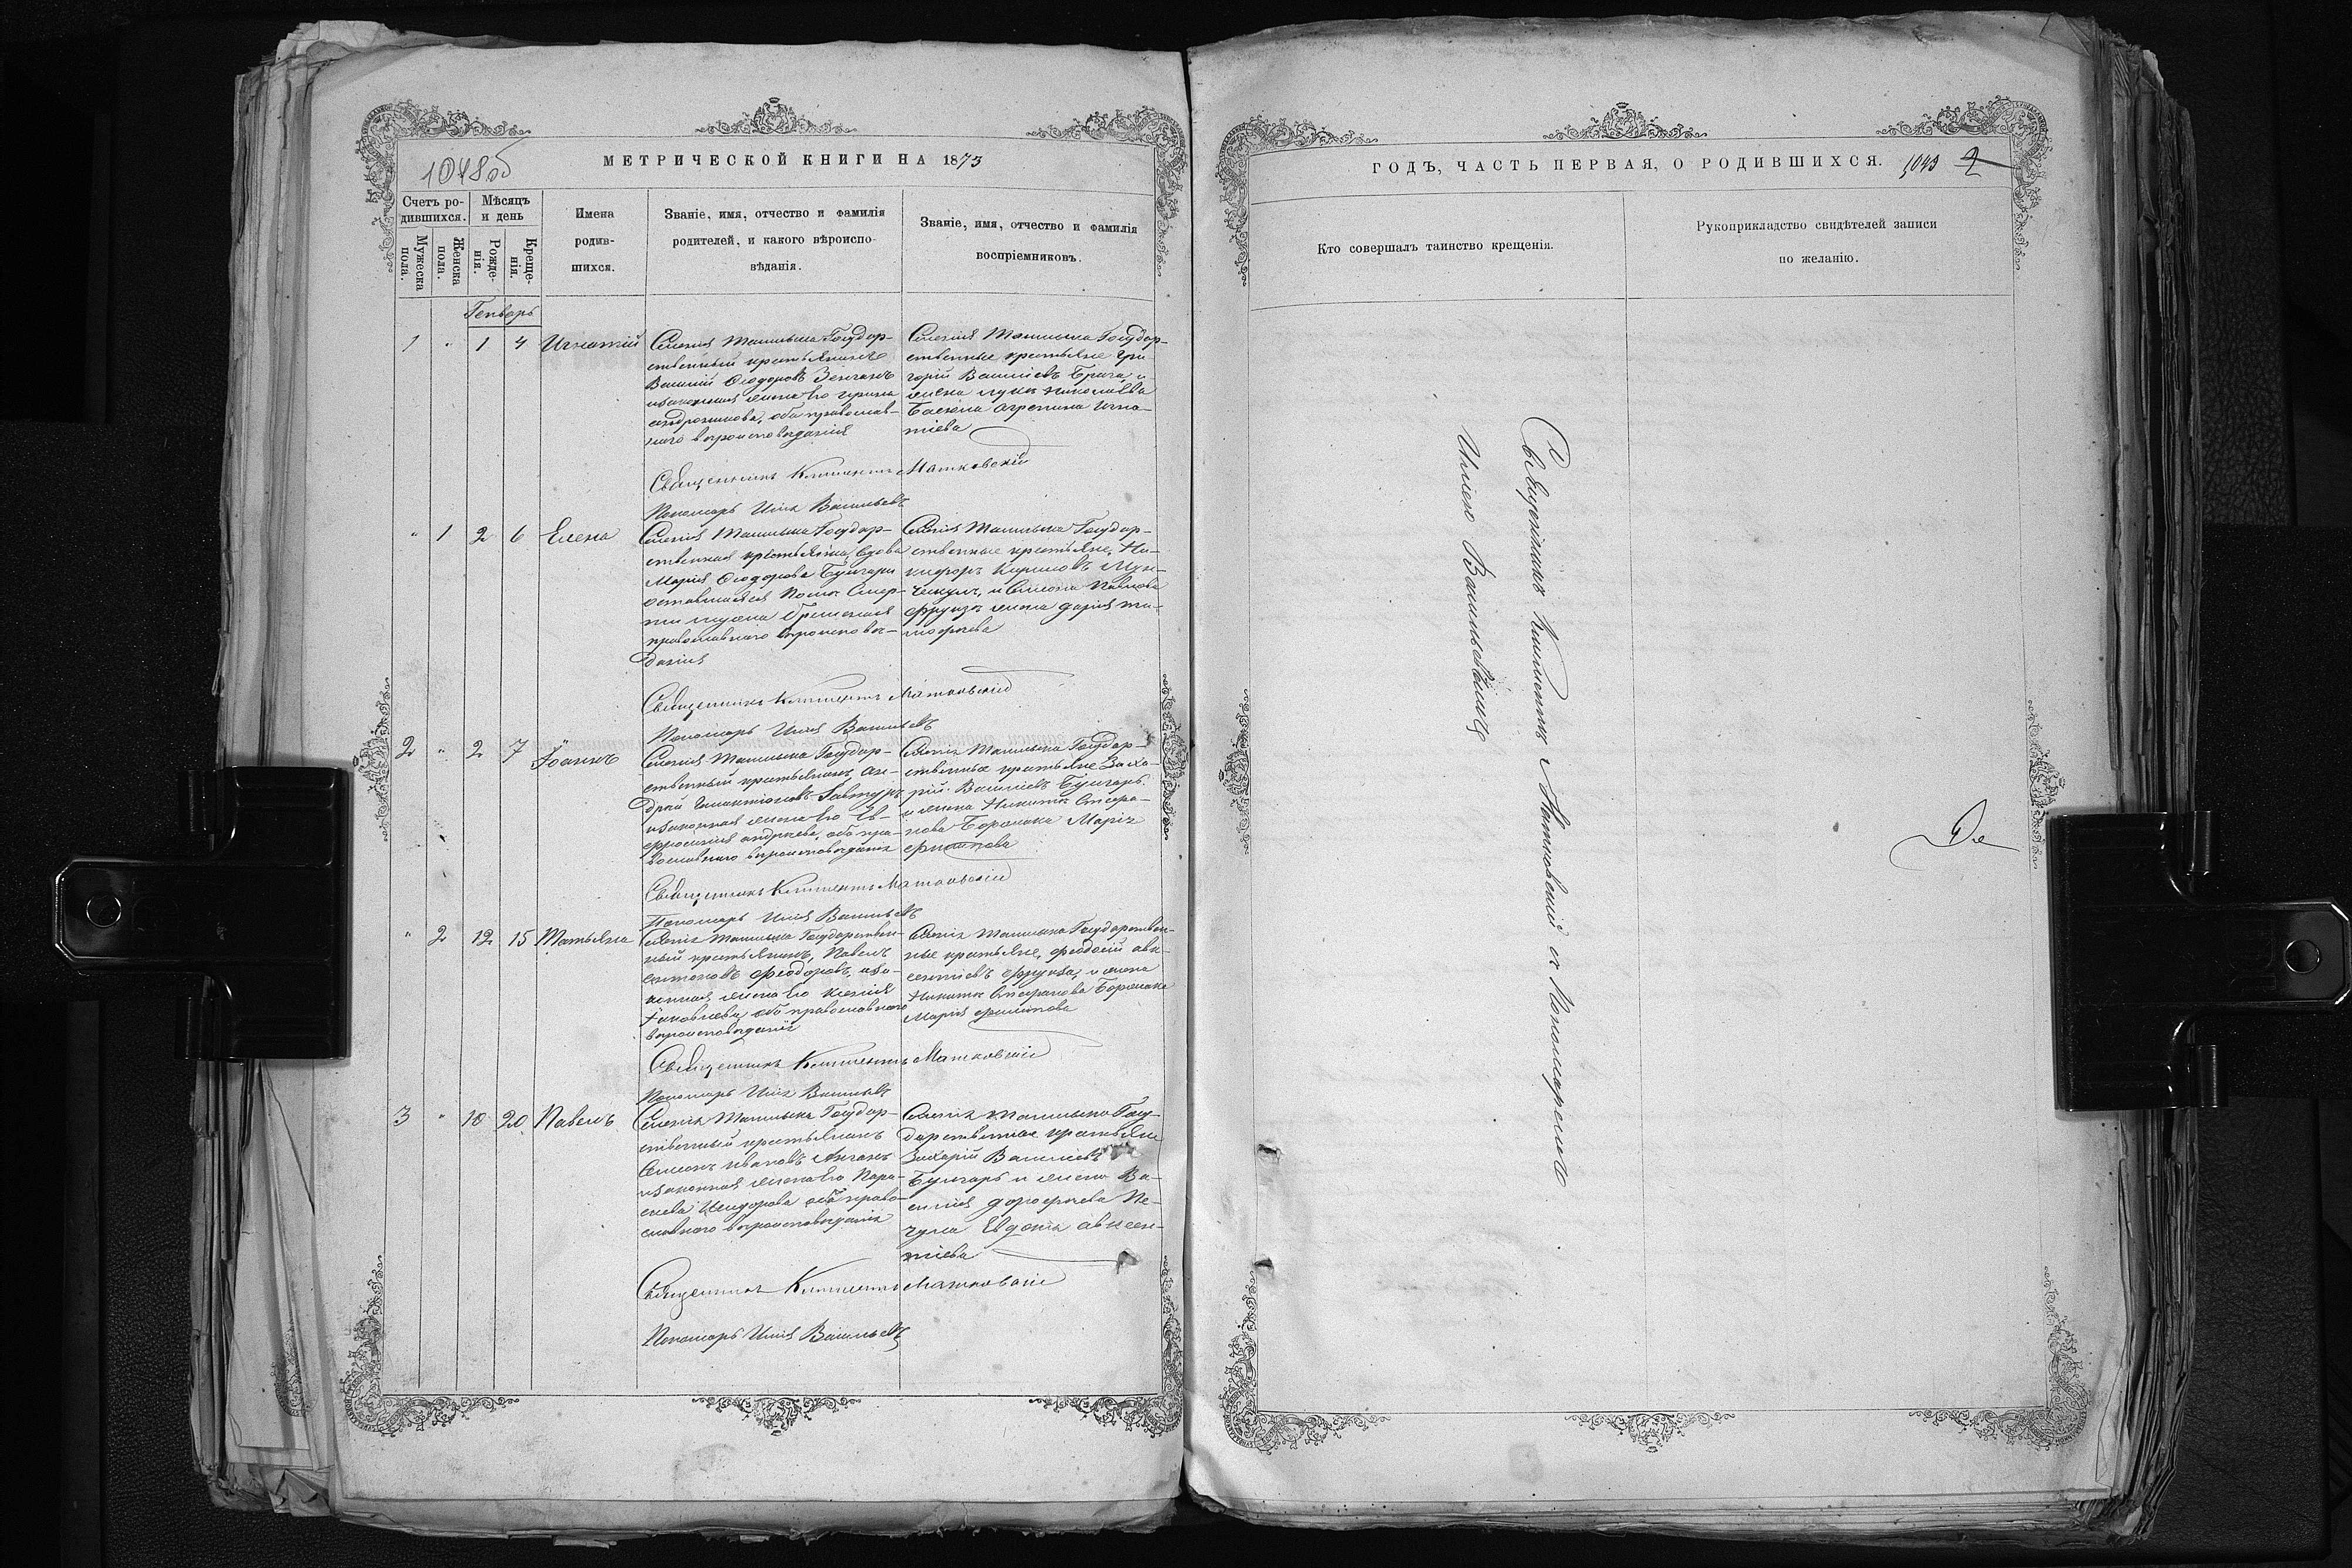 1048об
МЕТРИЧЕСКОЙ КНИГИ НА 1873
Счетъ ро-
дившихся.
Мѣсяцъ
и день
Мужеска
пола.
Женска
пола.
Рожде-
нія.
Креще-
нія.
Имена
родив-
шихся.
Званіе, имя, отчество и фамилія
родителей, и какого вѣроиспо-
вѣданія.
Званіе, имя, отчество и фамилія
воспріемниковъ.
Генварь
1 " 1 4 Игнатій
Селенія Государ-
ственный крестьянинъ
Василій Феодоровъ
и законная жена его Ирина
оба православ-
наго вѣроисповѣданія
Селенія Государ-
ственные крестьяне Гри-
горій Василіевъ и
жена Луки Николаева
Агрепина Игна-
тіева
Священникъ Климентъ Матковскій
Пономарь Илія Васильевъ
" 1 2 6 Елена
Селенія Государ-
ственная крестьянка, вдова
Марія Феодорова Булгари
оставшаяся послѣ смер-
ти мужа
православнаго вѣроисповѣ-
данія
Селенія Государ-
ственные крестьяне, Ни-
кифоръ Кириловъ
и Симеона Павлова
Фрунзы жена Дарія Ти-
мофеева
Священникъ Климентъ Матковскій
Пономарь Илія Васильевъ
2 " 2 7 Іоаннъ
Селенія Государ-
ственный крестьянинъ Ан-
дрей Галактіоновъ
и законная жена его Ев-
фросинія Андреева, оба пра-
вославнаго вѣроисповѣданія
Селенія Государ-
ственные крестьяне Заха-
рій Василіевъ Булгаръ
и жена Никиты Стефа-
нова Марія
Филипова
Священникъ Климентъ Матковскій
Пономарь Илія Васильевъ
" 2 12 15 Татьяна
Селенія Государствен-
ный крестьянинъ, Павелъ
Антоновъ Феодоровъ, и за-
конная жена его Ксенія
Іаковлева, оба православнаго
вѣроисповѣданія
Селенія Государствен-
ные крестьяне, Феодосій Авк-
сентіевъ Фрунза, и жена
Никиты Стефанова
Марія Филипова
Священникъ Климентъ Матковскій
Пономарь Илія Васильевъ
3 " 18 20 Павелъ
Селенія Государ-
ственный крестьянинъ
Симеонъ Ивановъ
и законная жена его Пара-
скева Исидорова оба право-
славнаго вѣроисповѣданія
Селенія Госу-
дарственные крестьяне
Захарій Василіевъ
Булгаръ и жена Ва-
силія Дорофеева
Евдокія Авксен-
тіева
Священникъ Климентъ Матковскій
Пономарь Илія Васильевъ
ГОДЪ, ЧАСТЬ ПЕРВАЯ, О РОДИВШИХСЯ. 1049 2
Кто совершалъ таинство крещенія.
Рукоприкладство свидѣтелей записи
по желанію.
Священникъ Климентъ Матковскій съ Пономаремъ
Иліею Васильевымъ